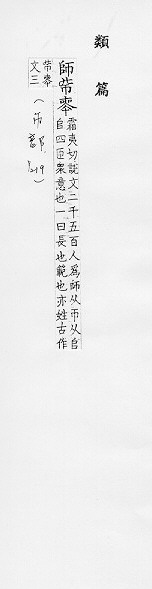 類篇
師𠂔𠦵
霜夷切說文二千五百人為師从帀从𠂤
𠂤四帀眾意也一曰長也範也亦姓古作
文三
(帀部